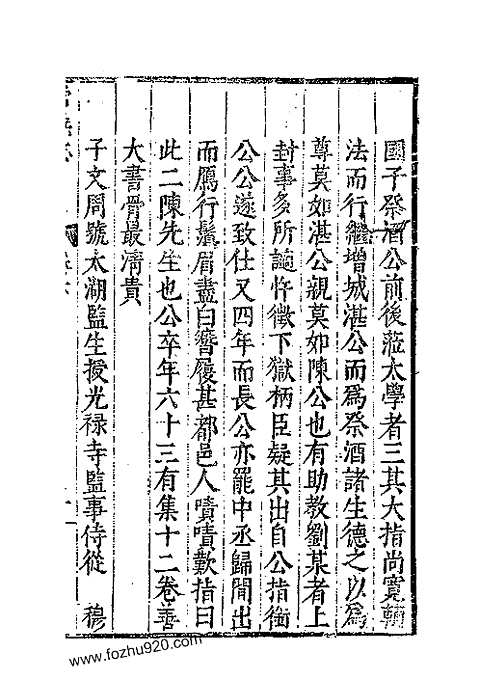 國子祭酒公前後蒞太學者三其大指尚寬輔
法而行繼增城湛公而爲祭酒諸生德之以爲
尊莫如湛公親莫如陳公也有助教劉某者上
封事多所詆忤徵下獄柄臣疑其出自公指銜
公公遂致仕又四年而長公亦罷中丞歸間出
而鴈行鬚眉盡白簪履甚都邑人嘖嘖歎指曰
此二陳先生也公卒年六十三有集十二卷善
大書骨最清貴
子文周號太湖監生授光禄寺監事侍從 穆
www.fozhu920.com